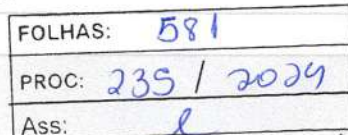 FOLHAS: 581
PROC: 235 / 2024
Ass: